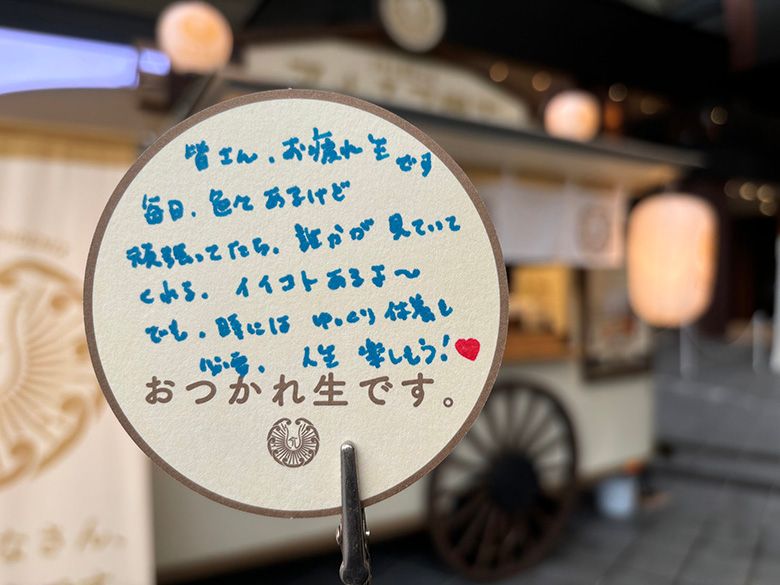 皆さん、お疲れ生です
毎日、色々あるけど
頑張ってたら、誰かが見ていて
くれる、イイコトあるよ〜
でも、時にはゆっくり休養も
必要、人生楽しもう!
おつかれ生です。
なさん、